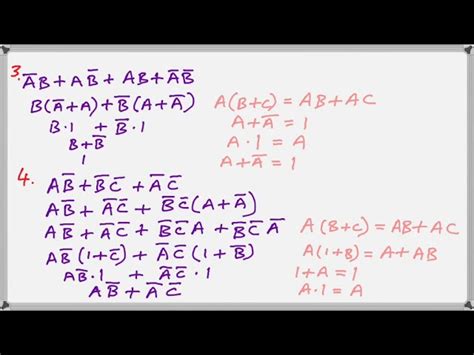 3. A̅B + AB̅ + AB + A̅B̅
B(A̅+A) + B̅(A+A̅)
B·1 + B̅·1
B+B̅
1
A(B+C) = AB+AC
A+A̅ = 1
A·1 = A
A+A̅ = 1
4. AB̅ + B̅C̅ + A̅C̅
AB̅ + A̅C̅ + B̅C̅(A+A̅)
AB̅ + A̅C̅ + B̅C̅A + B̅C̅A̅
AB̅(1+C̅) + A̅C̅(1+B̅)
AB̅·1 + A̅C̅·1
AB̅ + A̅C̅
A(B+C) = AB+AC
A(1+B) = A+AB
1+A = 1
A·1 = A